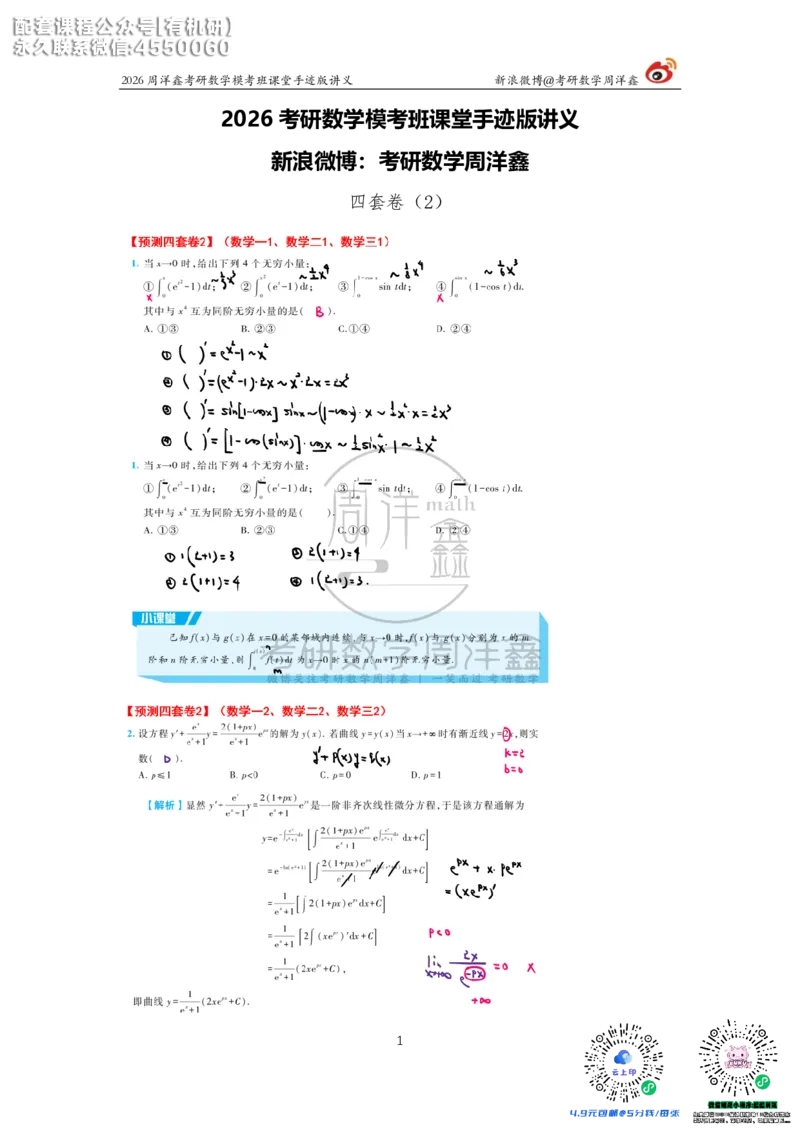 配套课程公众号[有机研]
永久联系微信:4550060
2026 周洋鑫考研数学模考班课堂手迹版讲义 新浪微博@考研数学周洋鑫
2026 考研数学模考班课堂手迹版讲义
新浪微博：考研数学周洋鑫
四套卷（2）
【预测四套卷2】（数学一1、数学二1、数学三1）
1. 当 x→0 时,给出下列 4 个无穷小量:
①∫₀ˣ(e^{t²}-1)dt; ~⅓x³ ②∫₀^{x²}(eᵗ-1)dt; ~½x⁴ ③∫₀^{1-cos x} sin tdt; ~⅛x⁴ ④∫₀^{sin x}(1-cos t)dt. ~⅙x³
x x
其中与 x⁴ 互为同阶无穷小量的是( B ).
A. ①③ B. ②③ C.①④ D. ②④
① ( )'=e^{x²}-1~x²
② ( )'=(e^{x²}-1)·2x~x²·2x=2x³
③ ( )'= sin[1-cosx] sinx~(1-cosx)·x~½x²·x=½x³
④ ( )'=[1-cos(sinx)]·cosx~½sin²x·1~½x²
1. 当 x→0 时,给出下列 4 个无穷小量:
①∫₀ˣ(e^{t²}-1)dt; ②∫₀^{x²}(eᵗ-1)dt; ③∫₀^{1-cos x} sin tdt; ④∫₀^{sin x}(1-cos t)dt.
其中与 x⁴ 互为同阶无穷小量的是( ).
A. ①③ B. ②③ C.①④ D. ②④
① 1(2+1)=3 ③ 2(1+1)=4
② 2(1+1)=4 ④ 1(2+1)=3.
周洋鑫 math
小课堂
已知 f(x)与 g(x)在 x=0 的某邻域内连续,当 x→0 时,f(x)与 g(x)分别为 x 的 m
阶和 n 阶无穷小量,则∫₀^{g(x)} f(t)dt 为 x→0 时 x 的 n(m+1)阶无穷小量.
n
m
考研数学周洋鑫
微博关注考研数学周洋鑫 | 一笑而过 考研数学
【预测四套卷2】（数学一2、数学二2、数学三2）
2. 设方程 y'+eˣ/(eˣ+1)y=2(1+px)/(eˣ+1)e^{px}的解为 y(x). 若曲线 y=y(x)当 x→+∞时有渐近线 y=2x,则实
数( D ). y'+P(x)y=Q(x) k=2
b=0
A. p≤1 B. p<0 C. p=0 D. p=1
【解析】显然 y'+eˣ/(eˣ+1)y=2(1+px)/(eˣ+1)e^{px}是一阶非齐次线性微分方程,于是该方程通解为
y=e^{-∫eˣ/(eˣ+1)dx}[∫2(1+px)e^{px}/(eˣ+1) e^{∫eˣ/(eˣ+1)dx}dx+C]
=e^{-ln(eˣ+1)}[∫2(1+px)e^{px}/(eˣ+1) e^{ln(eˣ+1)}dx+C] e^{px}+x·pe^{px}
=(xe^{px})'
=1/(eˣ+1)[∫2(1+px)e^{px}dx+C]
=1/(eˣ+1)[2∫(xe^{px})'dx+C] p<0
=1/(eˣ+1)(2xe^{px}+C), lim x→+∞ 2x/e^{-px}=0 x
即曲线 y=1/(eˣ+1)(2xe^{px}+C). +∞
1
云上印
4.9元包邮@5分钱/每张